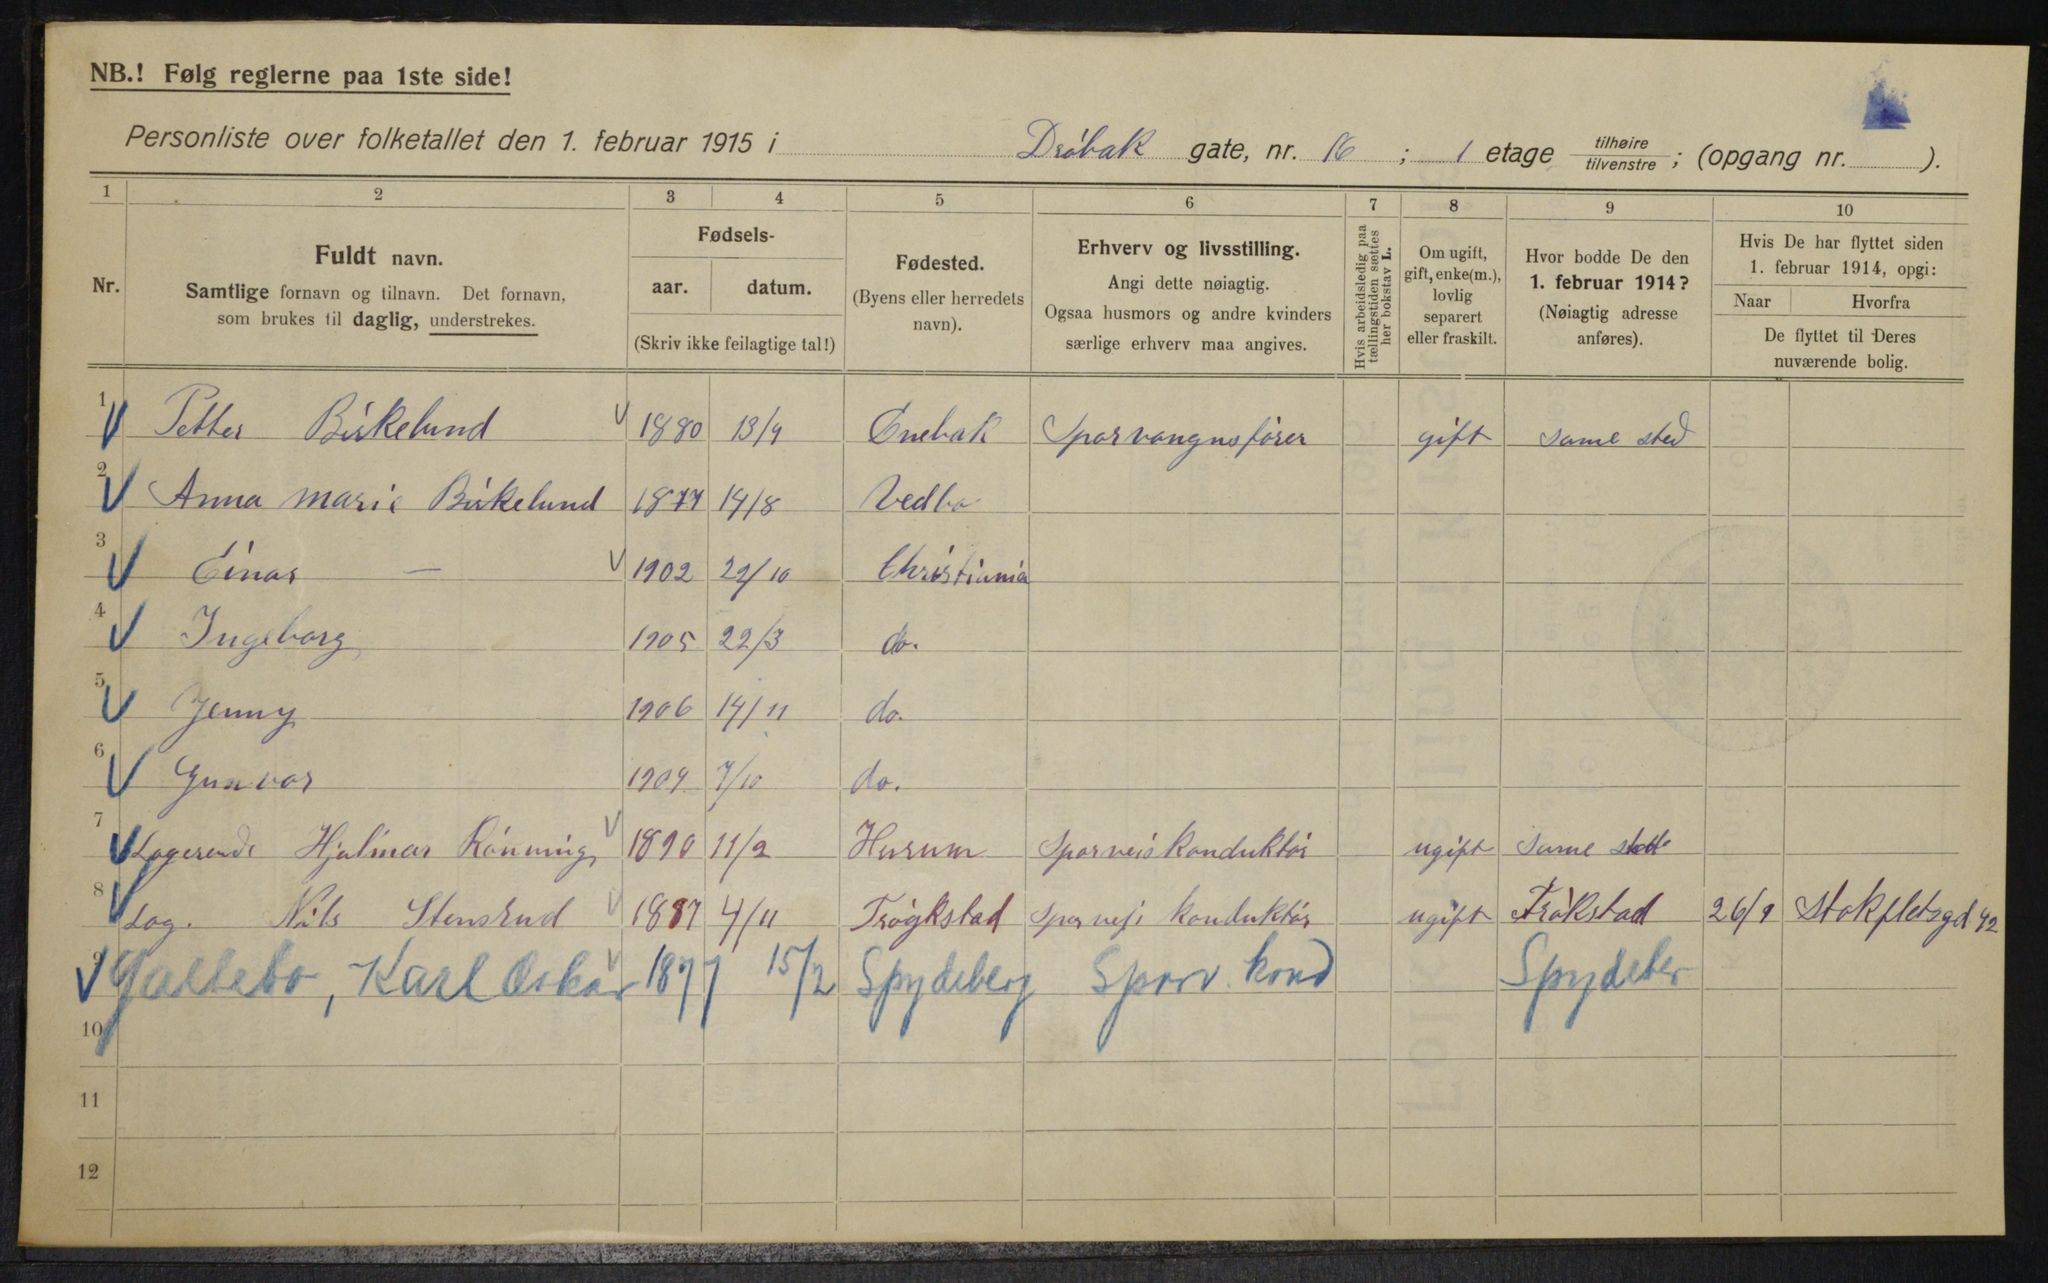 NB.! Følg reglerne paa 1ste side!
Personliste over folketallet den 1. februar 1915 i Drøbak gate, nr. 16 ; 1 etage tilhøire / tilvenstre ; (opgang nr. ).
1 2 3 4 5 6 7 8 9 10
Nr.
Fuldt navn.
Samtlige fornavn og tilnavn. Det fornavn,
som brukes til daglig, understrekes.
Fødsels-
aar. datum.
(Skriv ikke feilagtige tal!)
Fødested.
(Byens eller herredets
navn).
Erhverv og livsstilling.
Angi dette nøiagtig.
Ogsaa husmors og andre kvinders
særlige erhverv maa angives.
Hvis arbeidsledig paa
tællingstiden sættes
her bokstav L.
Om ugift,
gift, enke(m.),
lovlig
separert
eller fraskilt.
Hvor bodde De den
1. februar 1914?
(Nøiagtig adresse
anføres).
Hvis De har flyttet siden
1. februar 1914, opgi:
Naar Hvorfra
De flyttet til Deres
nuværende bolig.
1 Petter Birkelund 1880 13/9 Enebak Sporvangnsfører gift same sted
2 Anna marie Birkelund 1877 14/8 Vedbo
3 Einar — 1902 22/10 Christiania
4 Ingeborg 1905 22/3 do.
5 Jenny 1906 14/11 do.
6 Gunvor 1909 7/10 do.
7 Logerende Hjalmar Rønning 1890 11/2 Hurum Sporveiskonduktør ugift same
8 Log. Nils Stensrud 1887 4/11 Trøgkstad Sporveji konduktør ugift Trøkstad 26/9 Stokfletsgd 42
9 Galtebo, Karl Oskar 1877 15/2 Spydeberg Sporv. kond Spydeber
10
11
12